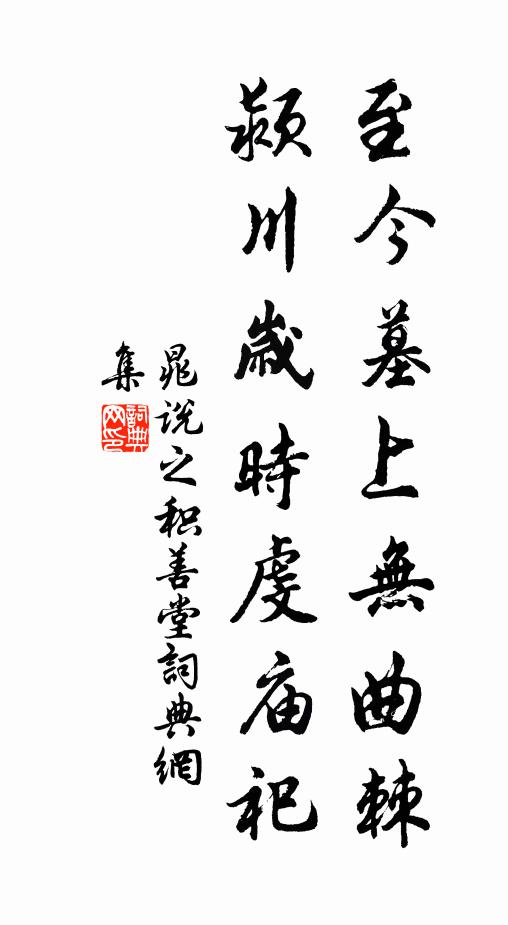 至今墓上無曲棘
潁川歲時虔廟祀
晁說之積善堂詞典網
集
詞典网印